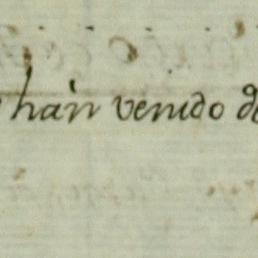 hàn venido de